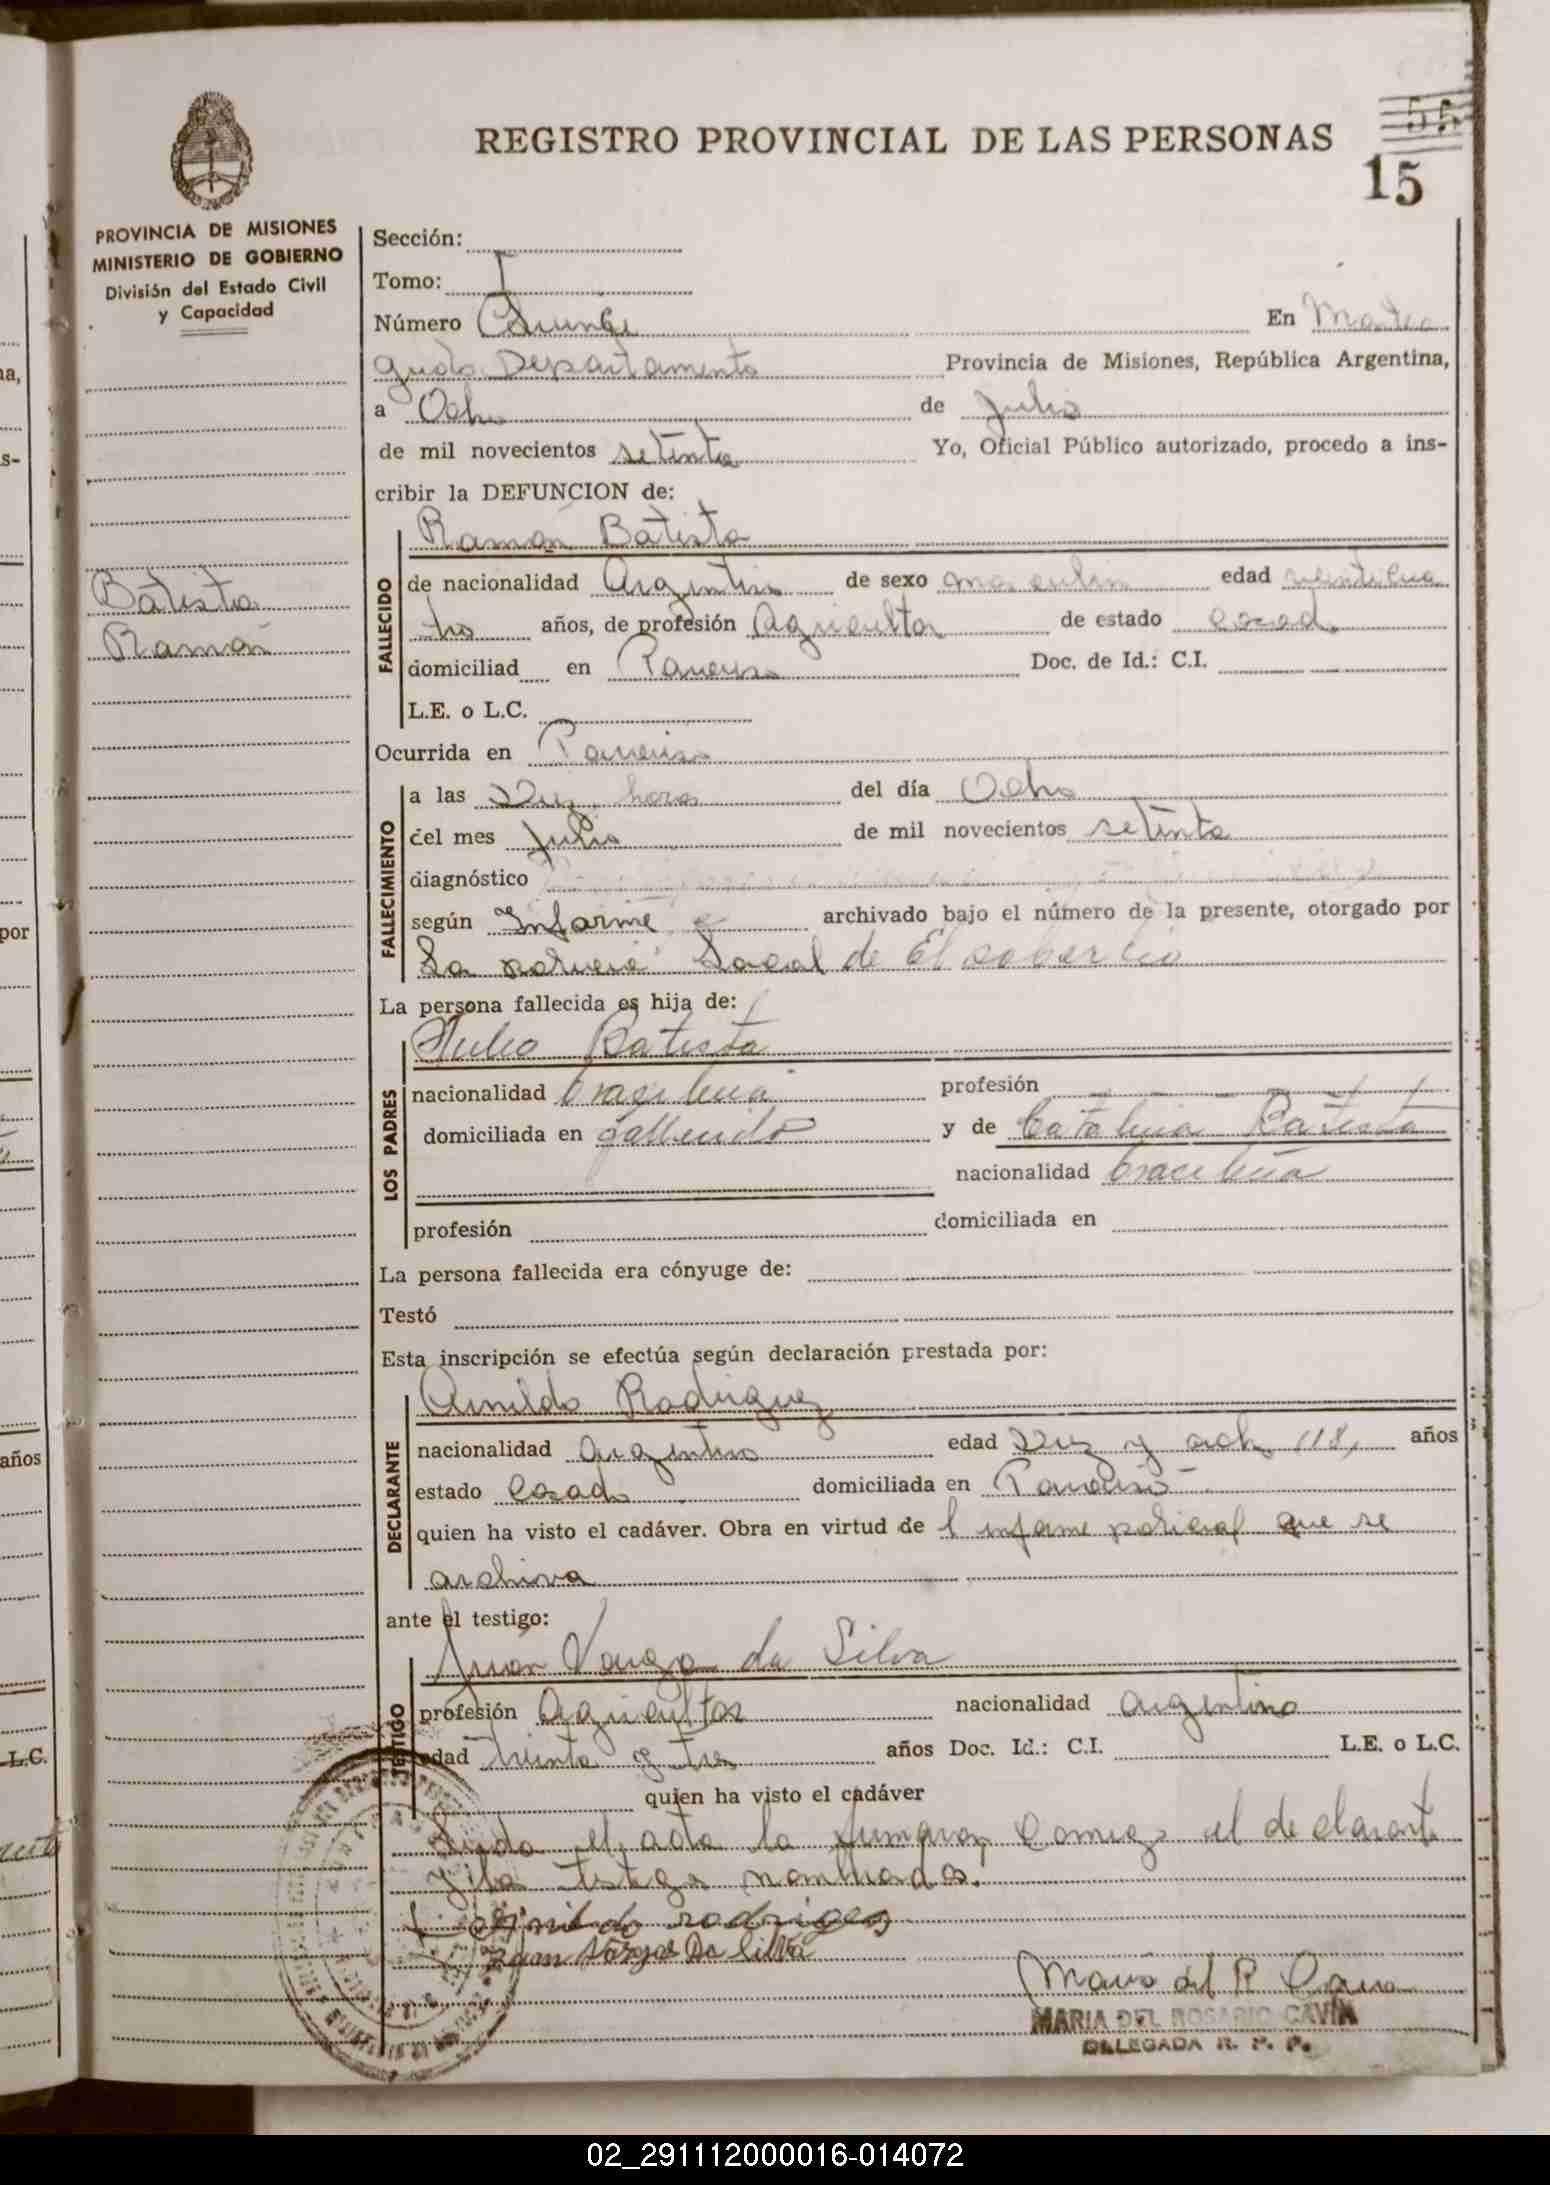 REGISTRO PROVINCIAL DE LAS PERSONAS
55
15
PROVINCIA DE MISIONES
MINISTERIO DE GOBIERNO
División del Estado Civil
y Capacidad
Batista
Ramón
Sección:
Tomo: I
Número Quince En
Departamento Provincia de Misiones, República Argentina,
a Ocho de Julio
de mil novecientos setenta Yo, Oficial Público autorizado, procedo a ins-
cribir la DEFUNCION de:
Ramón Batista
FALLECIDO
de nacionalidad Argentino de sexo masculino edad veinticua
tro años, de profesión Agricultor de estado casado
domiciliad en Paraiso Doc. de Id.: C.I.
L.E. o L.C.
Ocurrida en Paraiso
FALLECIMIENTO
a las Diez hora del día Ocho
del mes Julio de mil novecientos setenta
diagnóstico
según Informe archivado bajo el número de la presente, otorgado por
La policia Local de El soberbio
La persona fallecida es hija de:
LOS PADRES
Julio Batista
nacionalidad brasileña profesión
domiciliada en fallecido y de Catalina Batista
nacionalidad bracileña
profesión domiciliada en
La persona fallecida era cónyuge de:
Testó
Esta inscripción se efectúa según declaración prestada por:
DECLARANTE
Arnildo Rodriguez
nacionalidad argentino edad Diez y ocho (18) años
estado Casado domiciliada en Paraiso
quien ha visto el cadáver. Obra en virtud de l informe policial que se
archiva
ante el testigo:
TESTIGO
Juan Varga da Silva
profesión Agricultor nacionalidad argentino
edad treinta y tres años Doc. Id.: C.I. L.E. o L.C.
quien ha visto el cadáver
Leida el acta la firmaron Conmigo el declarante
y los testigo nombrados.
Arnildo rodriges
Juan Vargas Da Silva
Maria del R. Cavia
MARIA DEL ROSARIO CAVIA
DELEGADA R. P. P.
años
por
L.C.
02_291112000016-014072